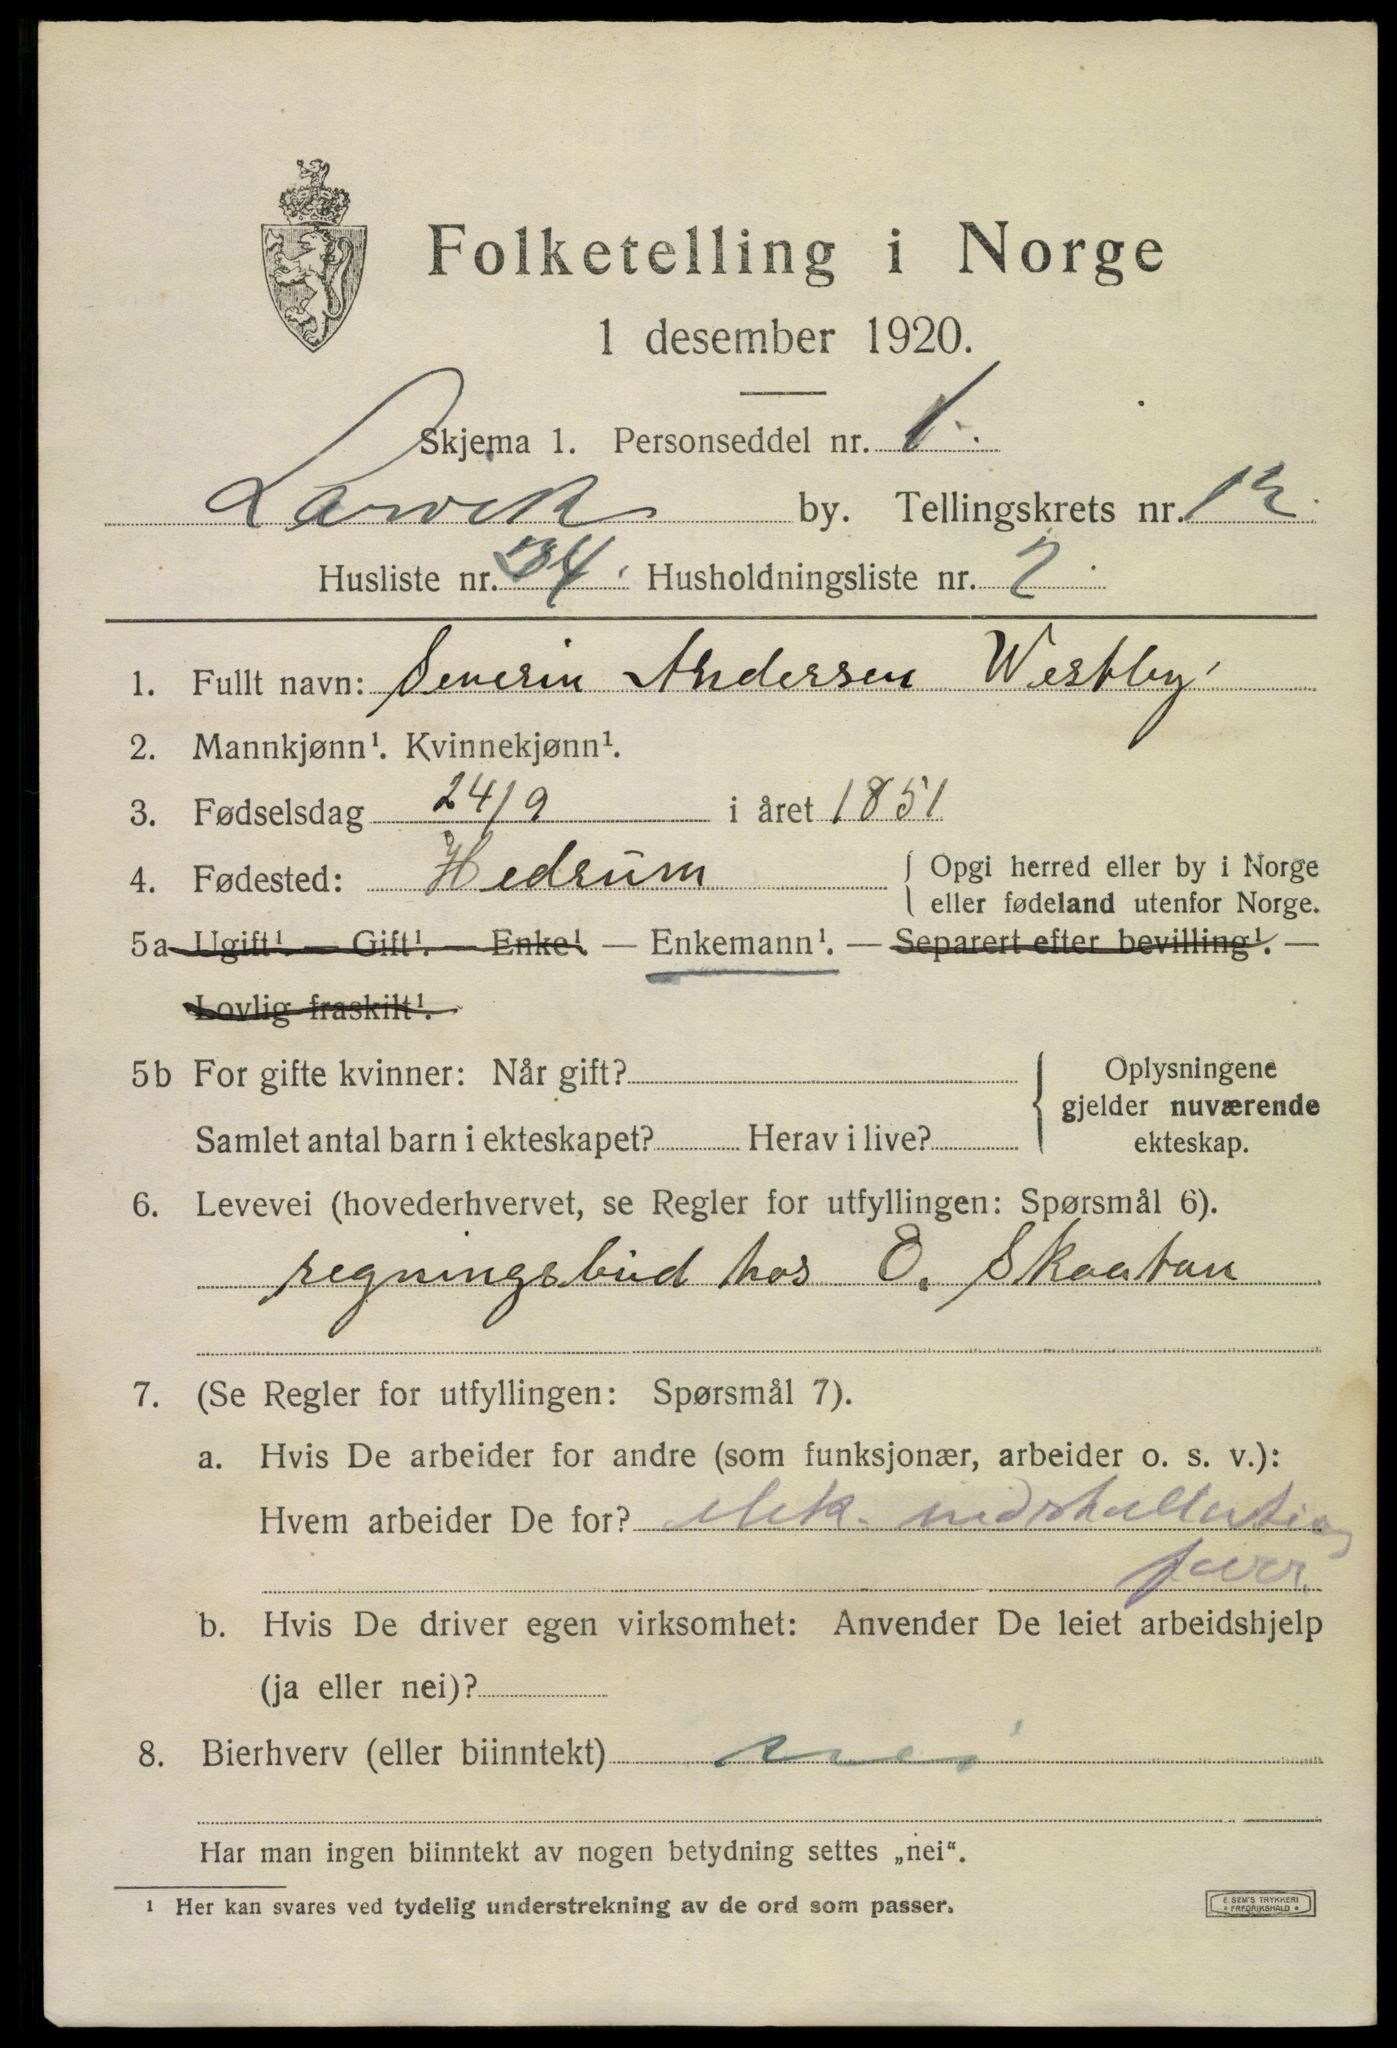 Folketelling i Norge
1 desember 1920.
Skjema 1. Personseddel nr. 1.
Larvik by. Tellingskrets nr. 12.
Husliste nr. 34. Husholdningsliste nr. 2.
1. Fullt navn: Severin Andersen Westby
2. Mannkjønn¹. Kvinnekjønn¹.
3. Fødselsdag 24/9 i året 1851
4. Fødested: Hedrum { Opgi herred eller by i Norge
eller fødeland utenfor Norge.
5a Ugift¹. — Gift¹. — Enke¹ — Enkemann¹. — Separert efter bevilling¹. —
Lovlig fraskilt¹.
5b For gifte kvinner: Når gift? { Oplysningene
gjelder nuværende
Samlet antal barn i ekteskapet? Herav i live? ekteskap.
6. Levevei (hovederhvervet, se Regler for utfyllingen: Spørsmål 6).
regningsbud hos O. Skaatan
7. (Se Regler for utfyllingen: Spørsmål 7).
a. Hvis De arbeider for andre (som funksjonær, arbeider o. s. v.):
Hvem arbeider De for? elek.
b. Hvis De driver egen virksomhet: Anvender De leiet arbeidshjelp
(ja eller nei)?
8. Bierhverv (eller biinntekt) nei
Har man ingen biinntekt av nogen betydning settes „nei“.
¹ Her kan svares ved tydelig understrekning av de ord som passer.
E. SEM'S TRYKKERI
FREDRIKSHALD